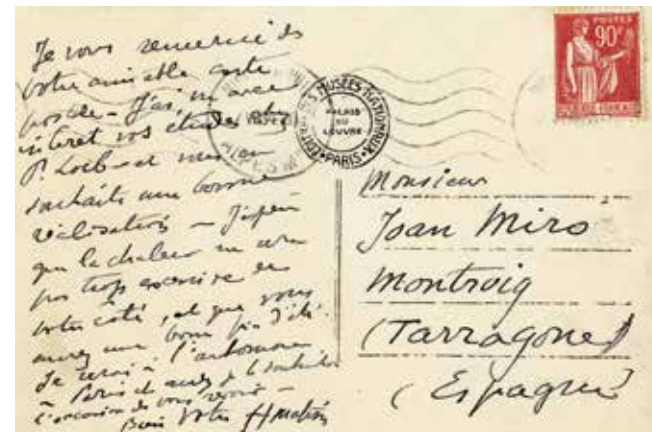 Je vous remercie de
votre aimable carte
postale – J'ai vu avec
interet vos études chez
P. Loeb – et vous en
souhaite une bonne
réalisation – J'espère
que la chaleur ne sera
pas trop excessive de
votre coté, et que vous
aurez une bonne fin d'été.
Je serai à l'automne
à Paris et aurai je le souhaite
l'occasion de vous revoir –
Bien votre H Matisse
MUSÉES NATIONAUX
PALAIS
DU
LOUVRE
PARIS
POSTES
90c
Monsieur
Joan Miró
Montroig
(Tarragone)
(Espagne)